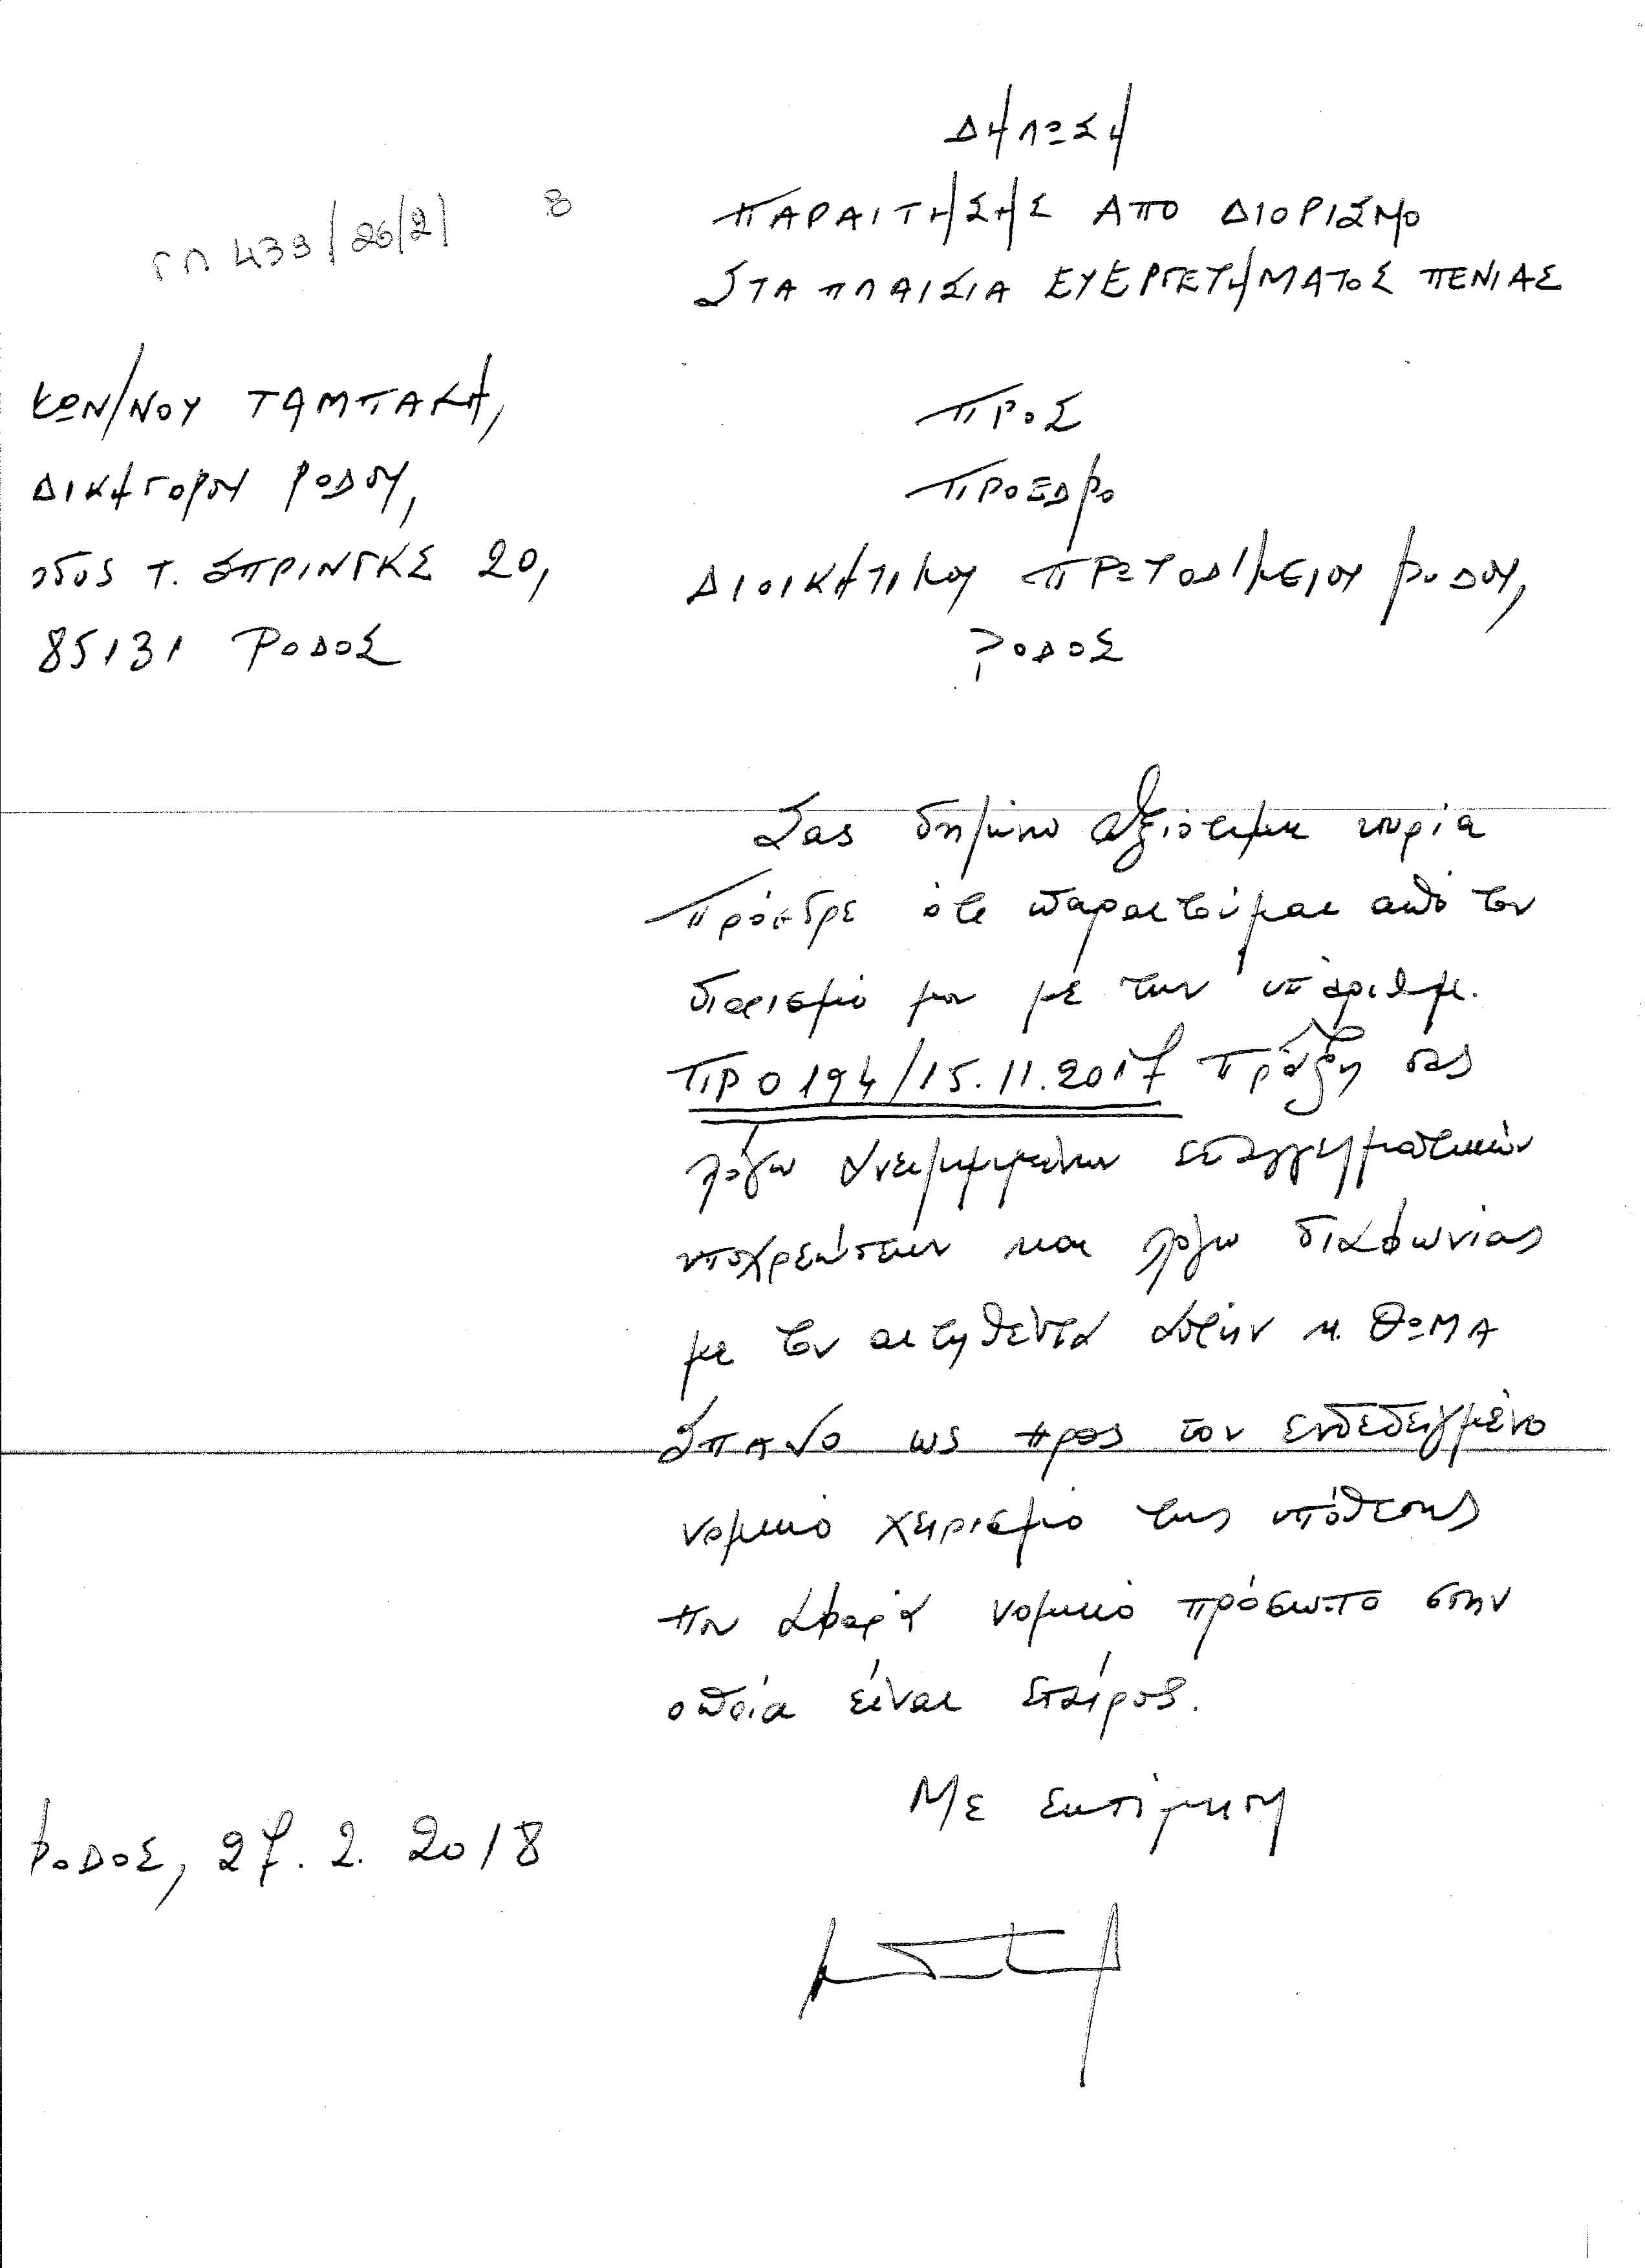 ΔΗΛΩΣΗ
ΠΑΡΑΙΤΗΣΗΣ ΑΠΟ ΔΙΟΡΙΣΜΟ
ΣΤΑ ΠΛΑΙΣΙΑ ΕΥΕΡΓΕΤΗΜΑΤΟΣ ΠΕΝΙΑΣ
ΓΠ 439/26/2/ 8
ΚΩΝ/ΝΟΥ ΤΑΜΠΑΚΗ,
ΔΙΚΗΓΟΡΟΥ ΡΟΔΟΥ,
οδος Τ. ΣΠΡΙΝΓΚΣ 20,
85131 ΡΟΔΟΣ
ΠΡΟΣ
ΠΡΟΕΔΡΟ
ΔΙΟΙΚΗΤΙΚΟΥ ΠΡΩΤΟΔΙΚΕΙΟΥ ΡΟΔΟΥ,
ΡΟΔΟΣ
Σας δηλώνω αξιότιμη κυρία
Πρόεδρε ότι παραιτούμαι από τον
διορισμό μου με την υπ' αριθμ.
ΠΡΟ 194/15.11.2017 Πράξη σας
λόγω ανειλημμένων επαγγελματικών
υποχρεώσεων και λόγω διαφωνίας
με τον αιτηθέντα αυτήν κ. ΘΩΜΑ
ΣΠΑΝΟ ως προς τον ενδεδειγμένο
νομικό χειρισμό της υπόθεσης
που αφορά νομικό πρόσωπο στην
οποία είναι εταίρος.
Με εκτίμηση
ΡΟΔΟΣ, 27.2.2018